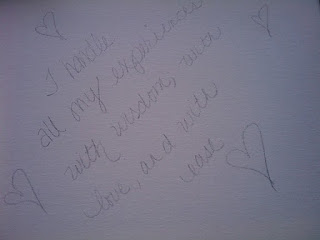 I handle
all my experiences
with wisdom, with
love, and with
ease